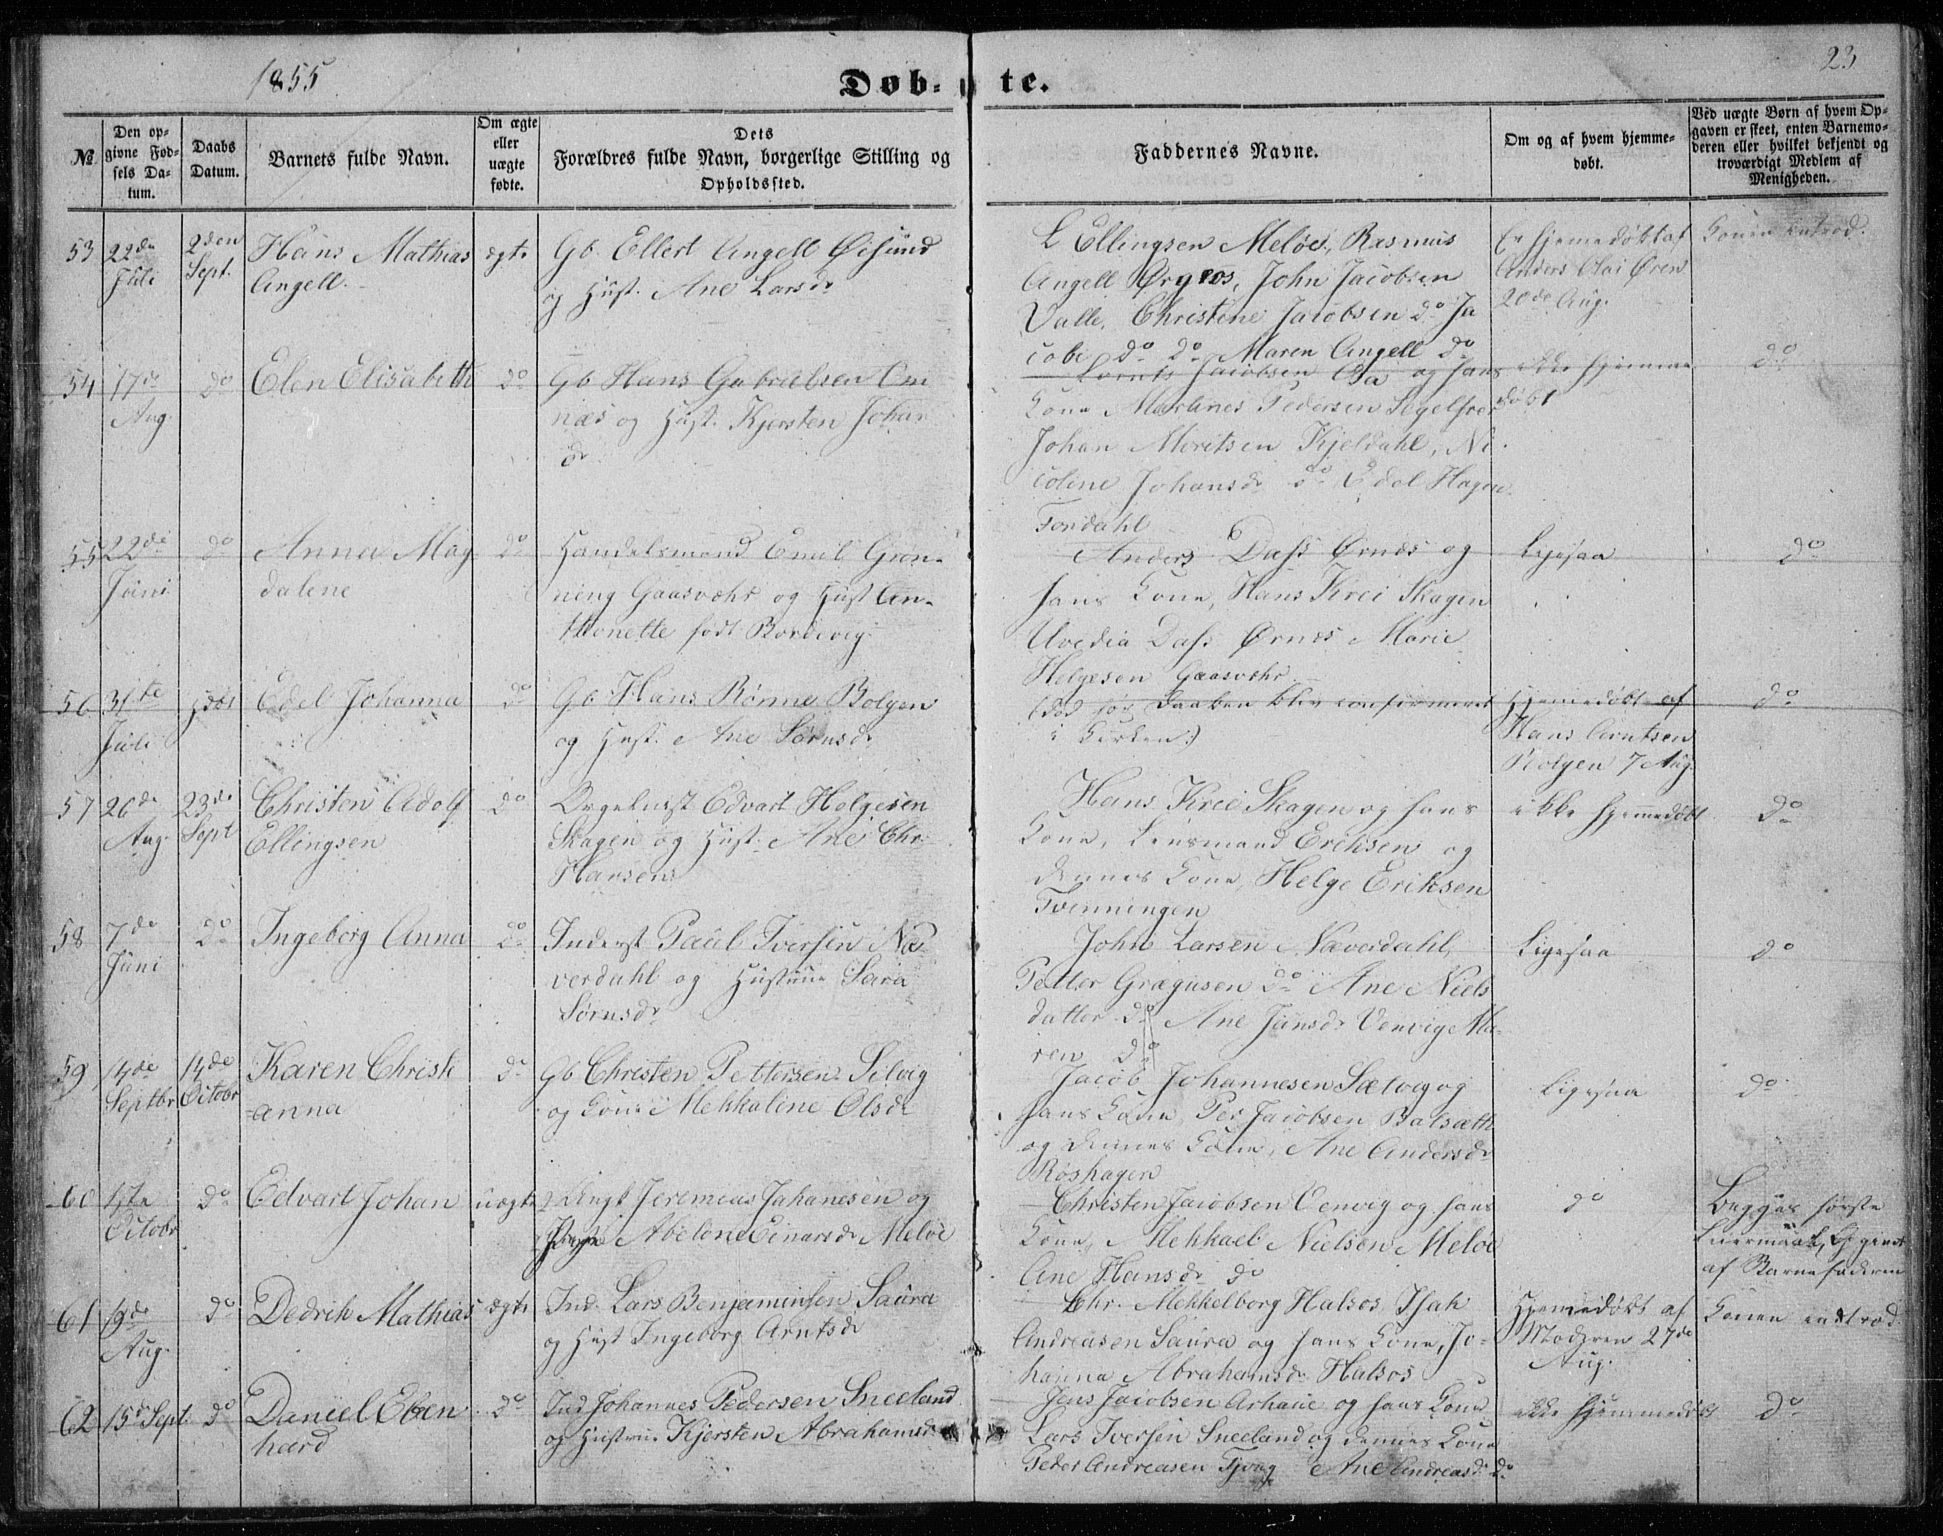 1855
Døb-
te.
23
№
Den op-
givne Fød-
sels Da-
tum.
Daabs
Datum.
Barnets fulde Navn.
Om ægte
eller
uægte
fødte.
Dets
Forældres fulde Navn, borgerlige Stilling og
Opholdssted.
Faddernes Navne.
Om og af hvem hjemme-
døbt.
Ved uægte Børn af hvem Op-
gaven er skeet, enten Barnemo-
deren eller hvilket bekjendt og
troværdigt Medlem af
Menigheden.
53
22de
Juli
2den
Sept.
Hans Mathias
Angell.
ægte
Gb. Ellert Angell Øisund
og Hust. Ane Larsdr
L Ellingsen Meløe, Rasmus
Angell Ørnes, John Jacobsen
Valle, Christine Jacobsen do Ja
cobi do do Maren Angell do
Er hjemedøbt af
Anders Olai Ørens
20de Aug.
Konen introd.
54
17de
Aug.
do
Elen Elisabeth
do
Gb Hans Gabrielsen Em
næs og Hust. Kjersten Johan
dr
Lornts Jacobsen Aa og hans
Kone Martines Pedersen Segelfor
Johan Moritsen Kjeldahl, Ni
coline Johansdr do Edel Hagen
Fondahl
ikke hjemme
døbt
do
55
22de
Juni
do
Anna Mag
dalene
do
Handelsmand Emil Grøn-
ning Gaasvær og Hust An-
thonette født Bordevig.
Anders Dass Ørnes og
hans Kone, Hans Krei Skagen
Uvedia Dass Ørnes Marie
Helgesen Gaasvær
Ligesaa
do
56
31te
Juli
hdbt
Edel Johanna
do
Gb Hans Rønne Bolgen
og Hust. Ane Sørnsdr
(død før Daaben blev confirmeret
i Kirken:)
Hjemedøbt af
Hans Arntsen
Bolgen 7 Aug.
do
57
26de
Aug.
23de
Sept
Christen Adolf
Ellingsen
do
Orgelnist Edvart Helgesen
Skagen og Hust. Ane Chr.
Hansen
Hans Krei Skagen og hans
Kone, Lensmand Eriksen og
dennes Kone, Helge Eriksen
Tvenningen
ikke hjemmedøbt
do
58
7de
Juni
do
Ingeborg Anna
do
Inderst Paul Iversen Næ-
verdahl og Hustrue Sara
Sørnsdr
John Larsen Næverdahl,
Petter Grægusen do Ane Niels
datter do Ane Jansdr Venvig Ma-
ren do
Ligesaa
do
59
14de
Septbr
14de
Octobr
Karen Christi
anna
do
Gb Christen Pettersen Selvig
og Kone Mekkaline Olsdr
Jacob Johannesen Sælvig og
hans Kone, Per Jacobsen Balsæth
og dennes Kone, Ane Andersdr
Røshagen
Ligesaa
do
60
1ste
Octobr
do
Edvart Johan
uægte
Ungk Jeremias Johanesen og
Pige Abelone Einarsdr Meløe
Christen Jacobsen Venvig og hans
Kone, Mekkael Nielsen Meløe
Ane Hansdr do
do
Begges første
Leiermaal, Opgivet
af Barnefaderen
61
19de
Aug.
do
Dedrik Mathias
ægte
Ind. Lars Benjaminsen Saura
og Hust Ingeborg Arntsdr
Chr. Mekkelborg Halsos, Isak
Andreasen Saura og hans Kone, Jo-
hanna Abrahamsdr Halsos
Hjemedøbt af
Moderen 27de
Aug.
Konen introd.
62
15de Sept.
do
Daniel Eben
hard
do
Ind Johannes Pedersen Sneeland
og Hustrue Kjersten Abrahamsdr
Jens Jacobsen Arhaue og hans Kone
Lars Iversen Sneeland og dennes Kone
Peder Andreasen Tjvag Ane Andreasdr do
ikke hjemmedøbt
do